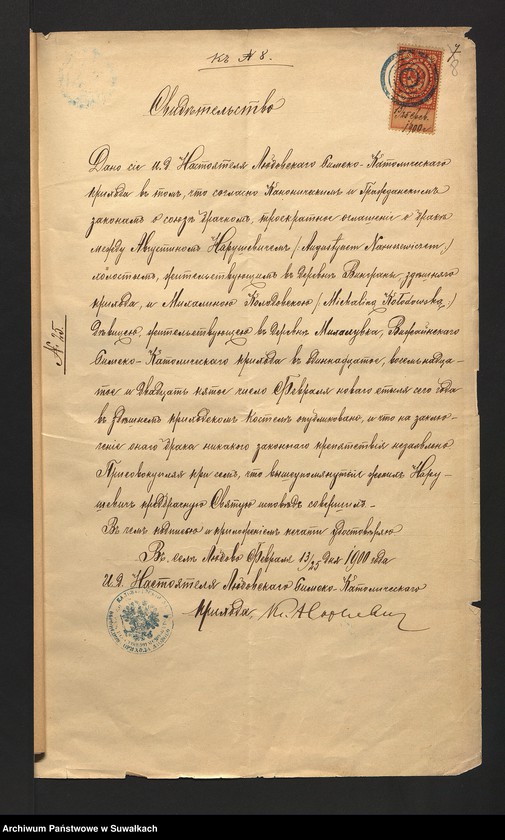 Къ № 8.
7
8
Свидѣтельство
1900 г.
Дано сіе И.Д. Настоятеля Любовскаго Римско-Католическаго
прихода въ томъ, что согласно Каноническимъ и Гражданскимъ
законамъ о союзѣ брачномъ, троекратное оглашеніе о бракѣ
между Августиномъ Нарушевичемъ (Augustynem Naruszewiczem)
холостымъ, жительствующимъ въ деревнѣ здѣшняго
прихода, и Михалиною Колодовскою (Michaliną Kołodowską)
дѣвицею, жительствующею въ деревнѣ Вижайнскаго
Римско-Католическаго прихода въ одиннадцатое, восемнадца-
тое и двадцать пятое число Февраля новаго стиля сего года
въ здѣшнемъ приходскомъ костелѣ опубликовано, и что на заклю-
ченіе онаго брака никакого законнаго препятствія незаявлено
Присовокупляя при семъ, что вышеупомянутый Нару-
шевичъ предбрачную Святую исповѣдь совершилъ. -
Въ семъ подписью и приложеніемъ печати удостовѣряю
Въ селѣ Любово Февраля 13/25 дня 1900 года
И.Д. Настоятеля Любовскаго Римско-Католическаго
прихода Кс.
№ 25.
Archiwum Państwowe w Suwałkach